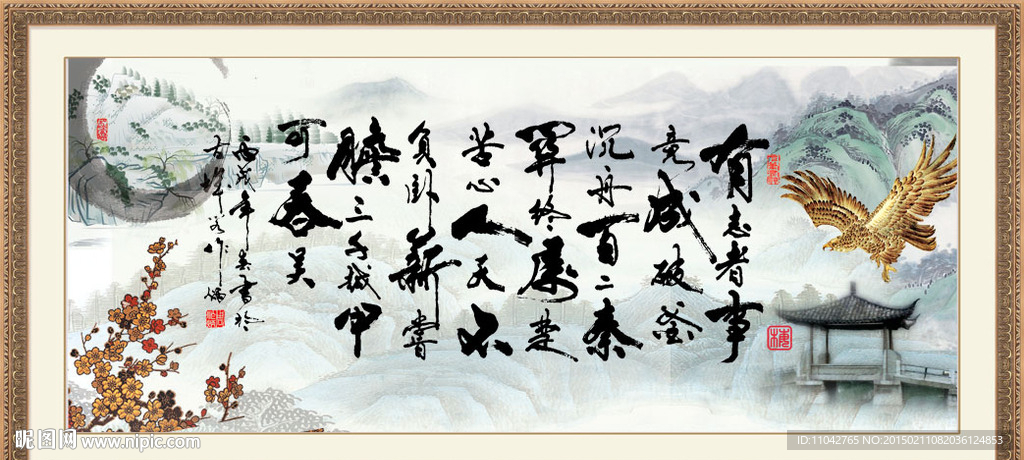 有志者事
竟成破釜
沉舟百二秦
關终屬楚
苦心人天不
負卧薪嘗
膽三千越甲
可吞吴
丙戌年書於
昵图网 www.nipic.com
ID:11042765 NO:20150211082036124853